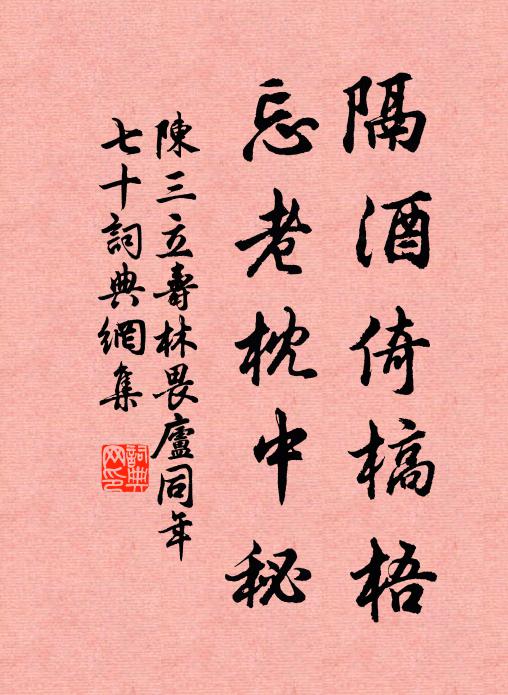 隔酒倚槁梧
忘老枕中秘
陳三立壽林畏廬同年
七十詞典網集
詞典網印